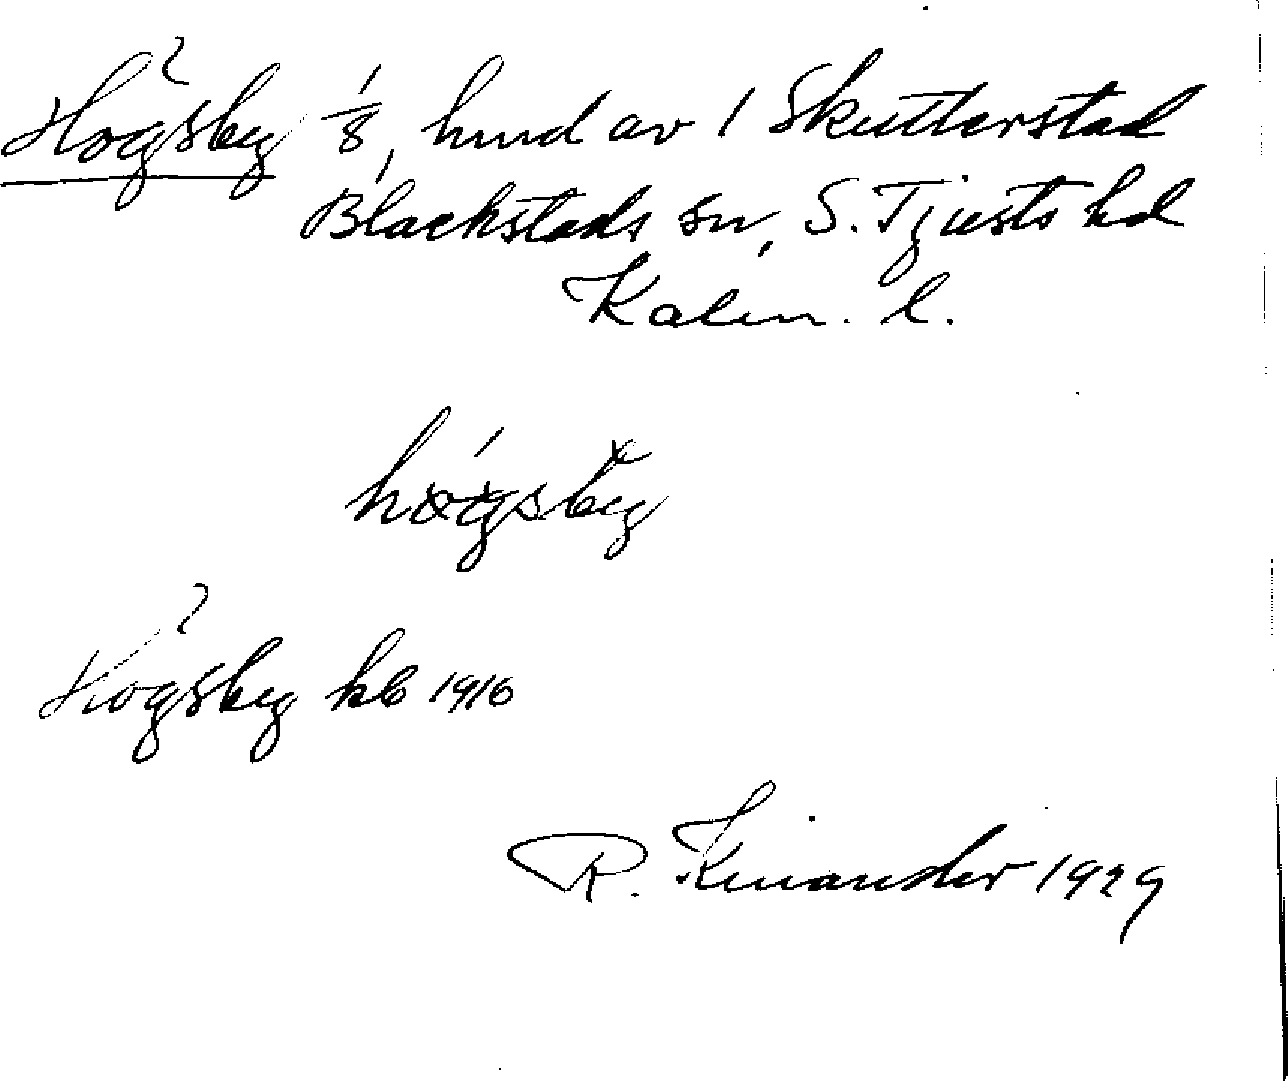 Högsby 1/8, hmd av 1 Skutterstad
Blackstads sn, S. Tjusts hd
Kalm. l.
högsby
Högsby kb 1916
R. Kinander 1929